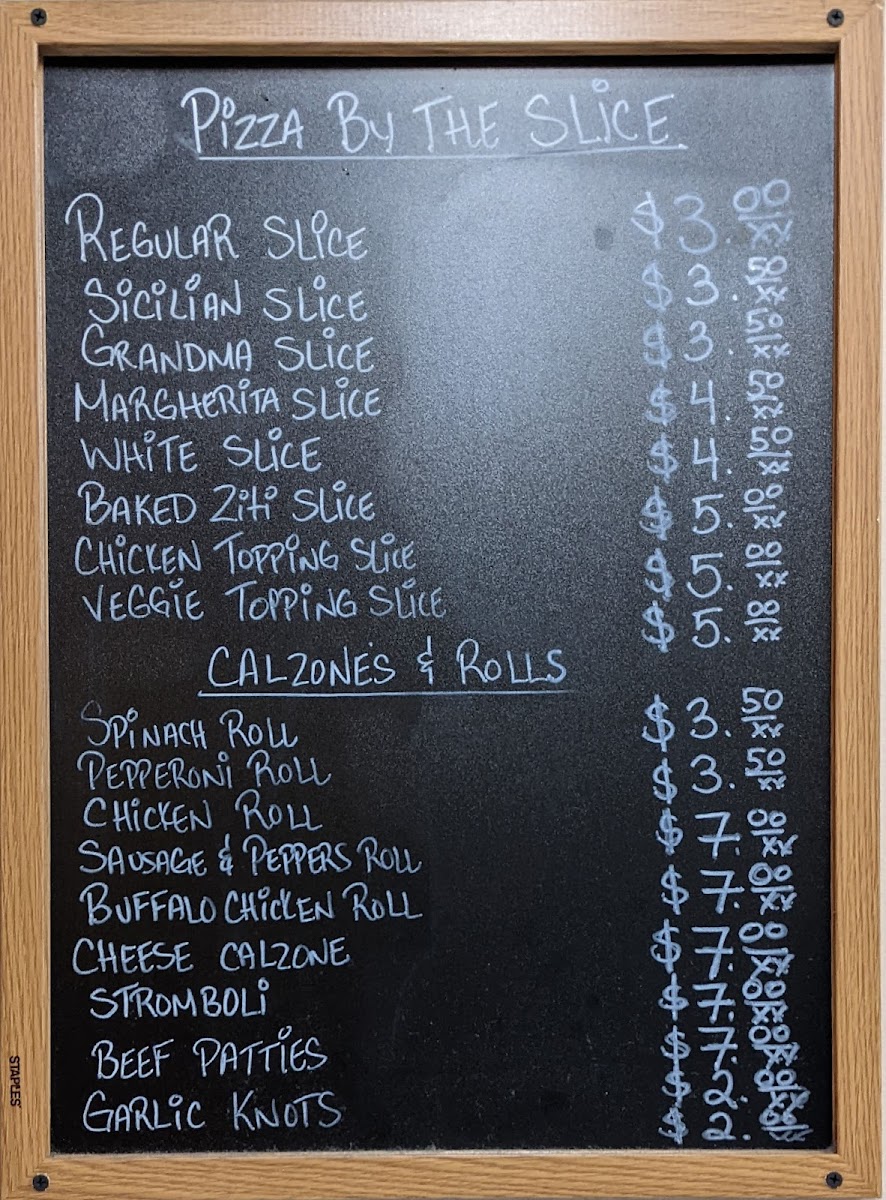 PIZZA BY THE SLICE
REGULAR SLICE $3.00/xx
SICILIAN SLICE $3.50/xx
GRANDMA SLICE $3.50/xx
MARGHERITA SLICE $4.50/xx
WHITE SLICE $4.50/xx
BAKED ZITI SLICE $5.00/xx
CHICKEN TOPPING SLICE $5.00/xx
VEGGIE TOPPING SLICE $5.00/xx
CALZONE'S & ROLLS
SPINACH ROLL $3.50/xx
PEPPERONI ROLL $3.50/xx
CHICKEN ROLL $7.00/xx
SAUSAGE & PEPPERS ROLL $7.00/xx
BUFFALO CHICKEN ROLL $7.00/xx
CHEESE CALZONE $7.00/xx
STROMBOLI $7.00/xx
BEEF PATTIES $2.00/xx
GARLIC KNOTS $2.00/xx
STAPLES